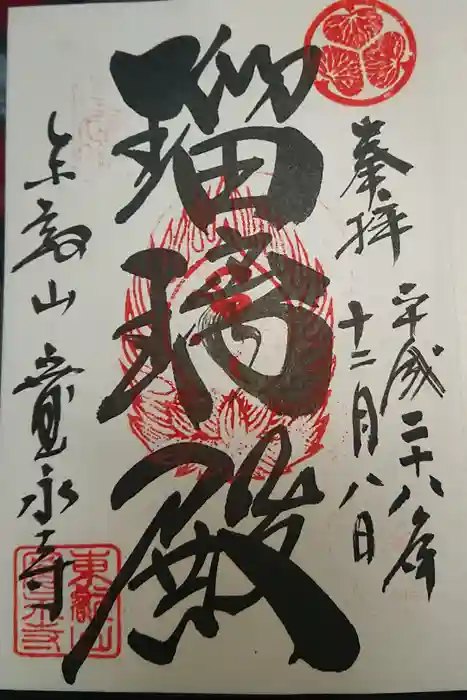 奉拝
平成二十八年
十二月八日
瑠璃殿
東叡山 寛永寺
東叡山
寛永寺